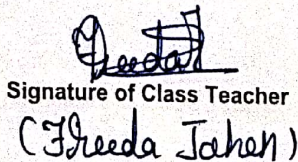 Signature of Class Teacher
(Freeda Jahen)